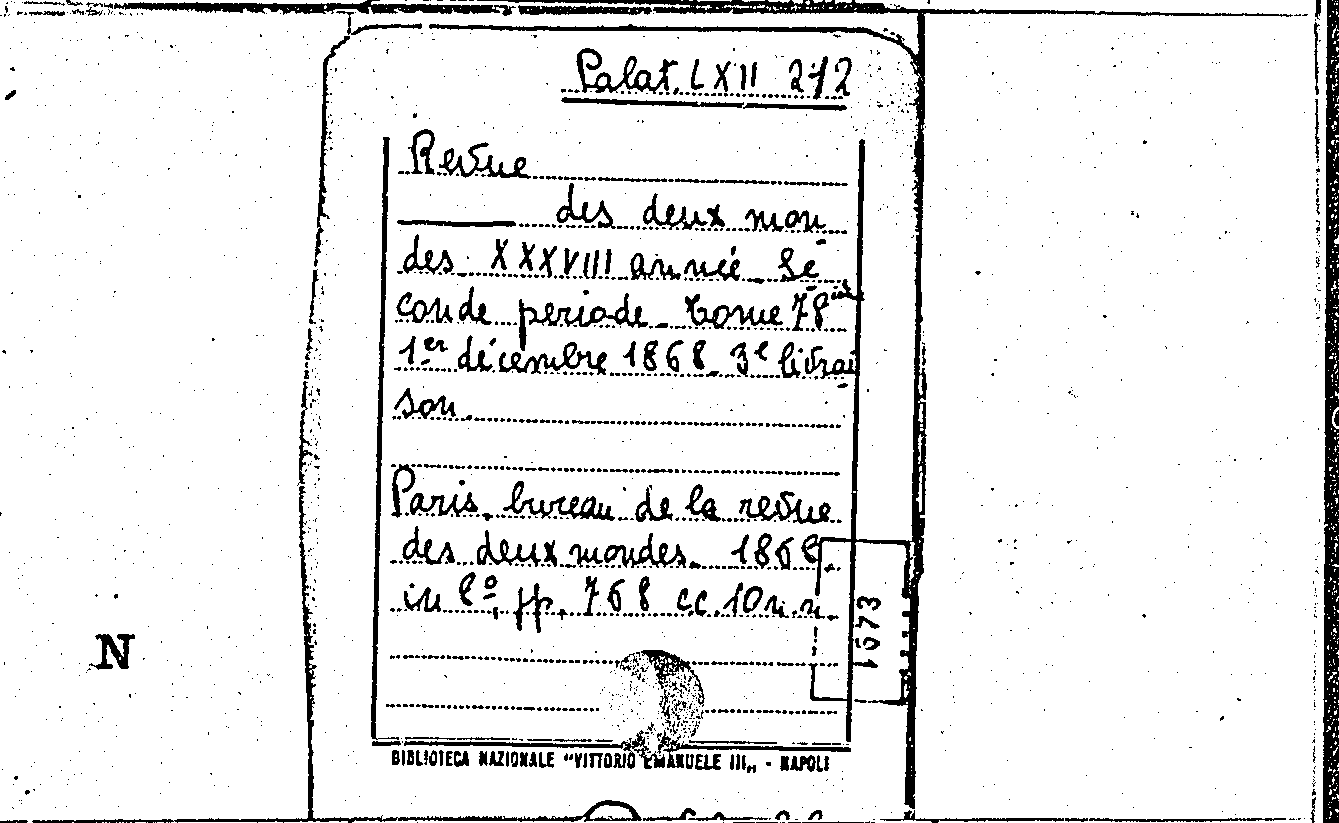 Palat. LXII 212
Revue
des deux mon
des XXXVIII année. Se
conde periode. Tome 78
1er décembre 1868. 3e livrai
son.
Paris. bureau de la revue
des deux mondes. 1868.
in 8º, pp. 768 cc. 10 n.n.
1673
N
BIBLIOTECA NAZIONALE "VITTORIO EMANUELE III„ - NAPOLI